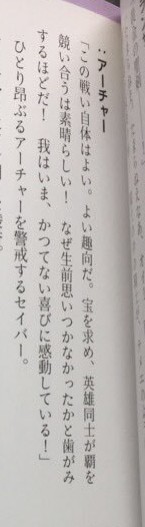 ：アーチャー
「この戦い自体はよい。よい趣向だ。宝を求め、英雄同士が覇を
競い合うは素晴らしい！　なぜ生前思いつかなかったかと歯がみ
するほどだ！　我はいま、かつてない喜びに感動している！」
ひとり昂ぶるアーチャーを警戒するセイバー。